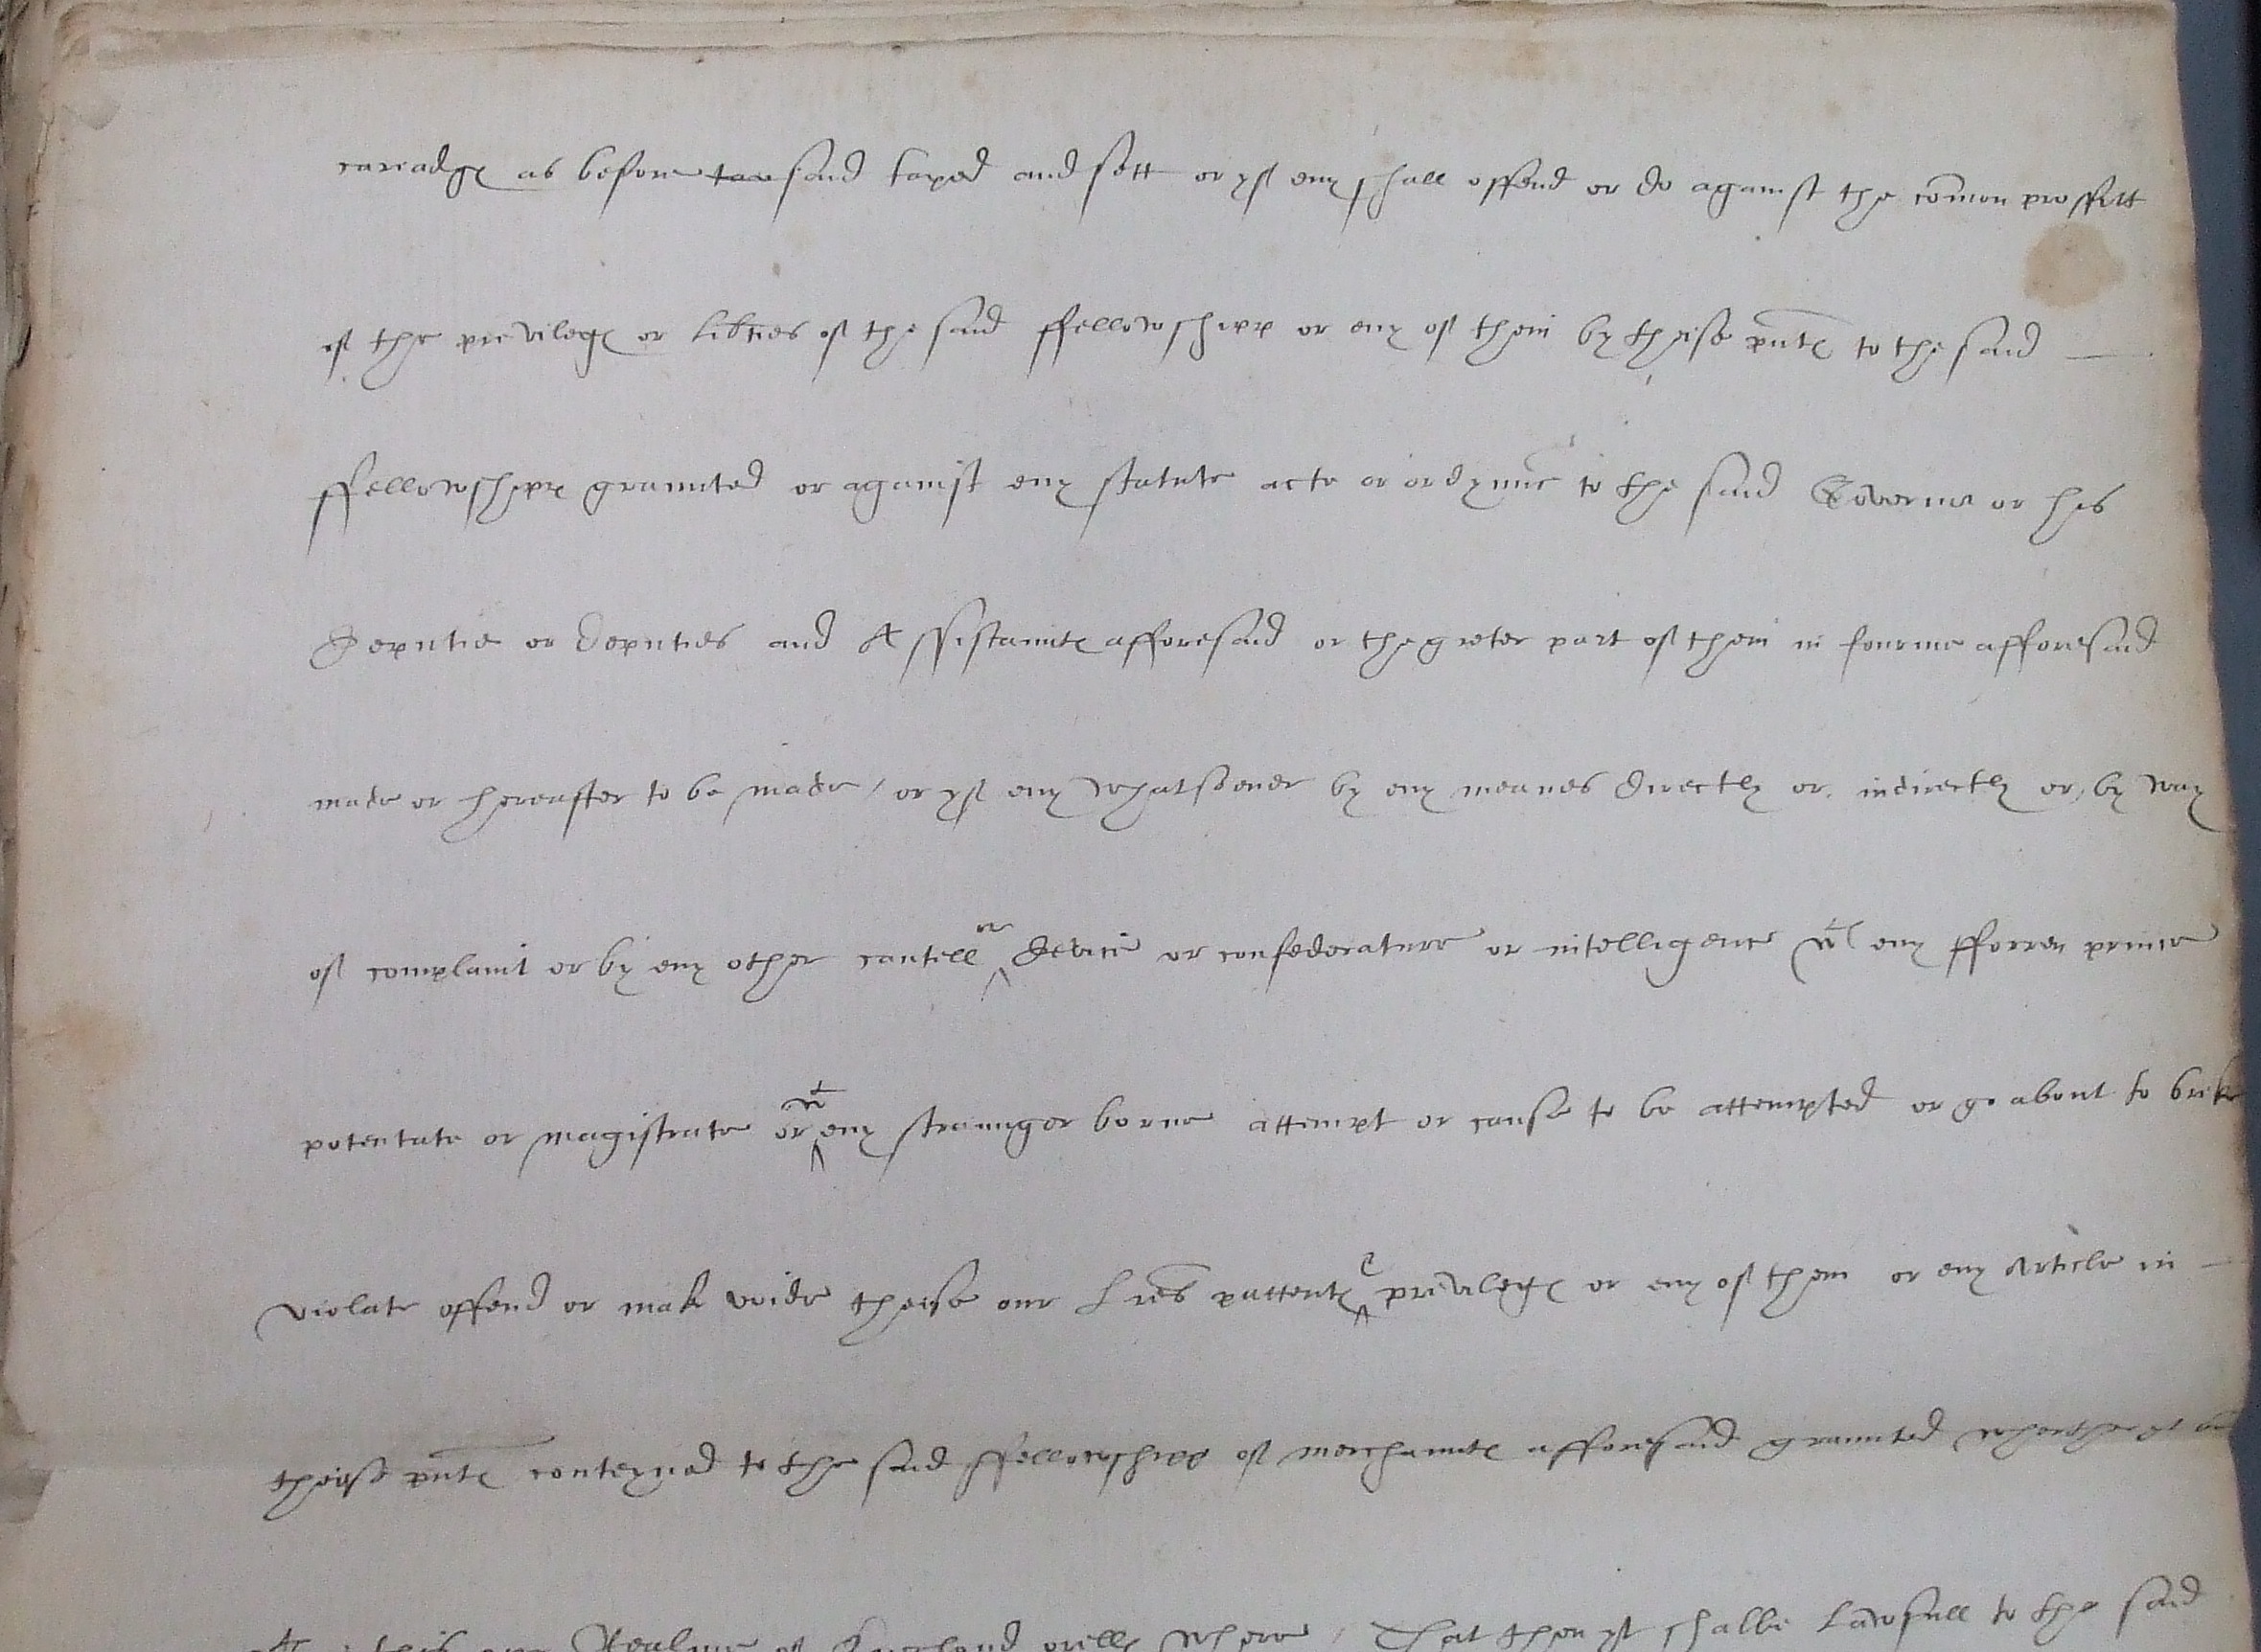 cariadge as before tax said taxed and sett or yf eny shall offend or do against the comon proffitt
of the previlege or libties of the said ffellowshipp or eny of them by theise pnte to the said
ffellowshipp graunted or against eny statute acte or ordynnc to the said Governor or his
Deputie or deputies and Assistaunte afforesaid or the greter part of them in fourme afforesaid
made or hereafter to be made / or yf eny whatsoever by eny meanes directly or indirectly or by way
of complaint or by eny other cautell or device or confederature or intelligence wt eny fforren prince
potentate or magistrate or wt eny straunger borne attempt or cause to be attempted or go about to breke
violate offend or make voide theise our Lres pattente & previlege or eny of them or eny Article in
theise pnte conteyned to the said ffellowshipp of merchaunte afforesaid graunted whether yt be
this our Realme of England or elle where / That then yt shalbe lawfull to the said